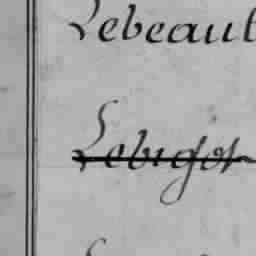 Lebeaul
Lebigot